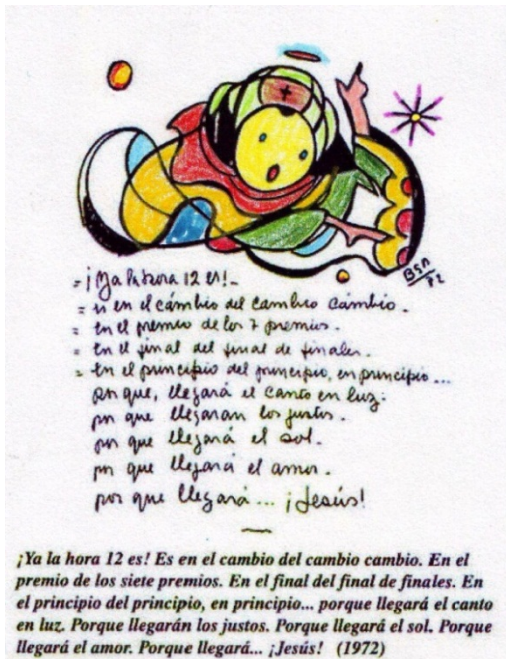 BSP
72
= ¡Ya la hora 12 es! -
= es en el cámbio del cambio cámbio.
= en el premio de los 7 premios.
= en el final del final de finales.
= en el principio del principio, en principio...
por que, llegará el canto en luz.
por que llegaran los justos.
por que llegará el sol.
por que llegará el amor.
por que llegará... ¡Jesús!
¡Ya la hora 12 es! Es en el cambio del cambio cambio. En el
premio de los siete premios. En el final del final de finales. En
el principio del principio, en principio... porque llegará el canto
en luz. Porque llegarán los justos. Porque llegará el sol. Porque
llegará el amor. Porque llegará... ¡Jesús! (1972)